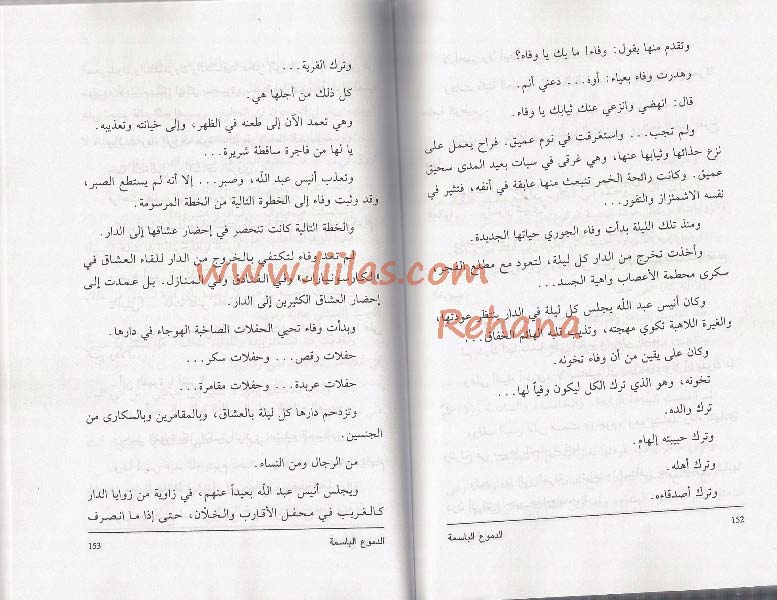 وتقدم منها يقول: وفاء! ما بك يا وفاء؟
وهدرت وفاء بعياء: أوه... دعني أنم.
قال: انهضي وانزعي عنك ثيابك يا وفاء.
ولم تجب... واستغرقت في نوم عميق. فراح يعمل على
نزع حذائها وثيابها عنها، وهي غرقى في سبات بعيد المدى سحيق
عميق. وكانت رائحة الخمر تنبعث منها عابقة في أنفه، فتثير في
نفسه الاشمئزاز والنفور...
ومنذ تلك الليلة بدأت وفاء الجوري حياتها الجديدة.
وأخذت تخرج من الدار كل ليلة، لتعود مع مطلع الفجر،
سكرى محطمة الأعصاب واهية الجسد...
وكان أنيس عبد الله يجلس كل ليلة في الدار ينتظر عودتها،
والغيرة اللاهبة تكوي مهجته، وتذيب قلبه الهائم الخفاق...
وكان على يقين من أن وفاء تخونه.
تخونه، وهو الذي ترك الكل ليكون وفياً لها...
ترك والده.
وترك حبيبته إلهام.
وترك أهله.
وترك أصدقاءه.
الدموع الباسمة
152
وترك القرية...
كل ذلك من أجلها هي.
وهي تعمد الآن إلى طعنه في الظهر، وإلى خيانته وتعذيبه.
يا لها من فاجرة ساقطة شريرة...
وتعذب أنيس عبد الله، وصبر... إلا أنه لم يستطع الصبر،
وقد وثبت وفاء إلى الخطوة التالية من الخطة المرسومة.
والخطة التالية كانت تنحصر في إحضار عشاقها إلى الدار.
لم تعد وفاء لتكتفي بالخروج من الدار للقاء العشاق في
«الكارسونيارات» وفي الفنادق وفي المنازل. بل عمدت إلى
إحضار العشاق الكثيرين إلى الدار.
وبدأت وفاء تحيي الحفلات الصاخبة الهوجاء في دارها.
حفلات رقص... وحفلات سكر...
حفلات عربدة... وحفلات مقامرة...
وتزدحم دارها كل ليلة بالعشاق، وبالمقامرين وبالسكارى من
الجنسين.
من الرجال ومن النساء.
ويجلس أنيس عبد الله بعيداً عنهم، في زاوية من زوايا الدار
كالغريب في محفل الأقارب والخلّان، حتى إذا ما انصرف
الدموع الباسمة
153
www.liilas.com
Rehana